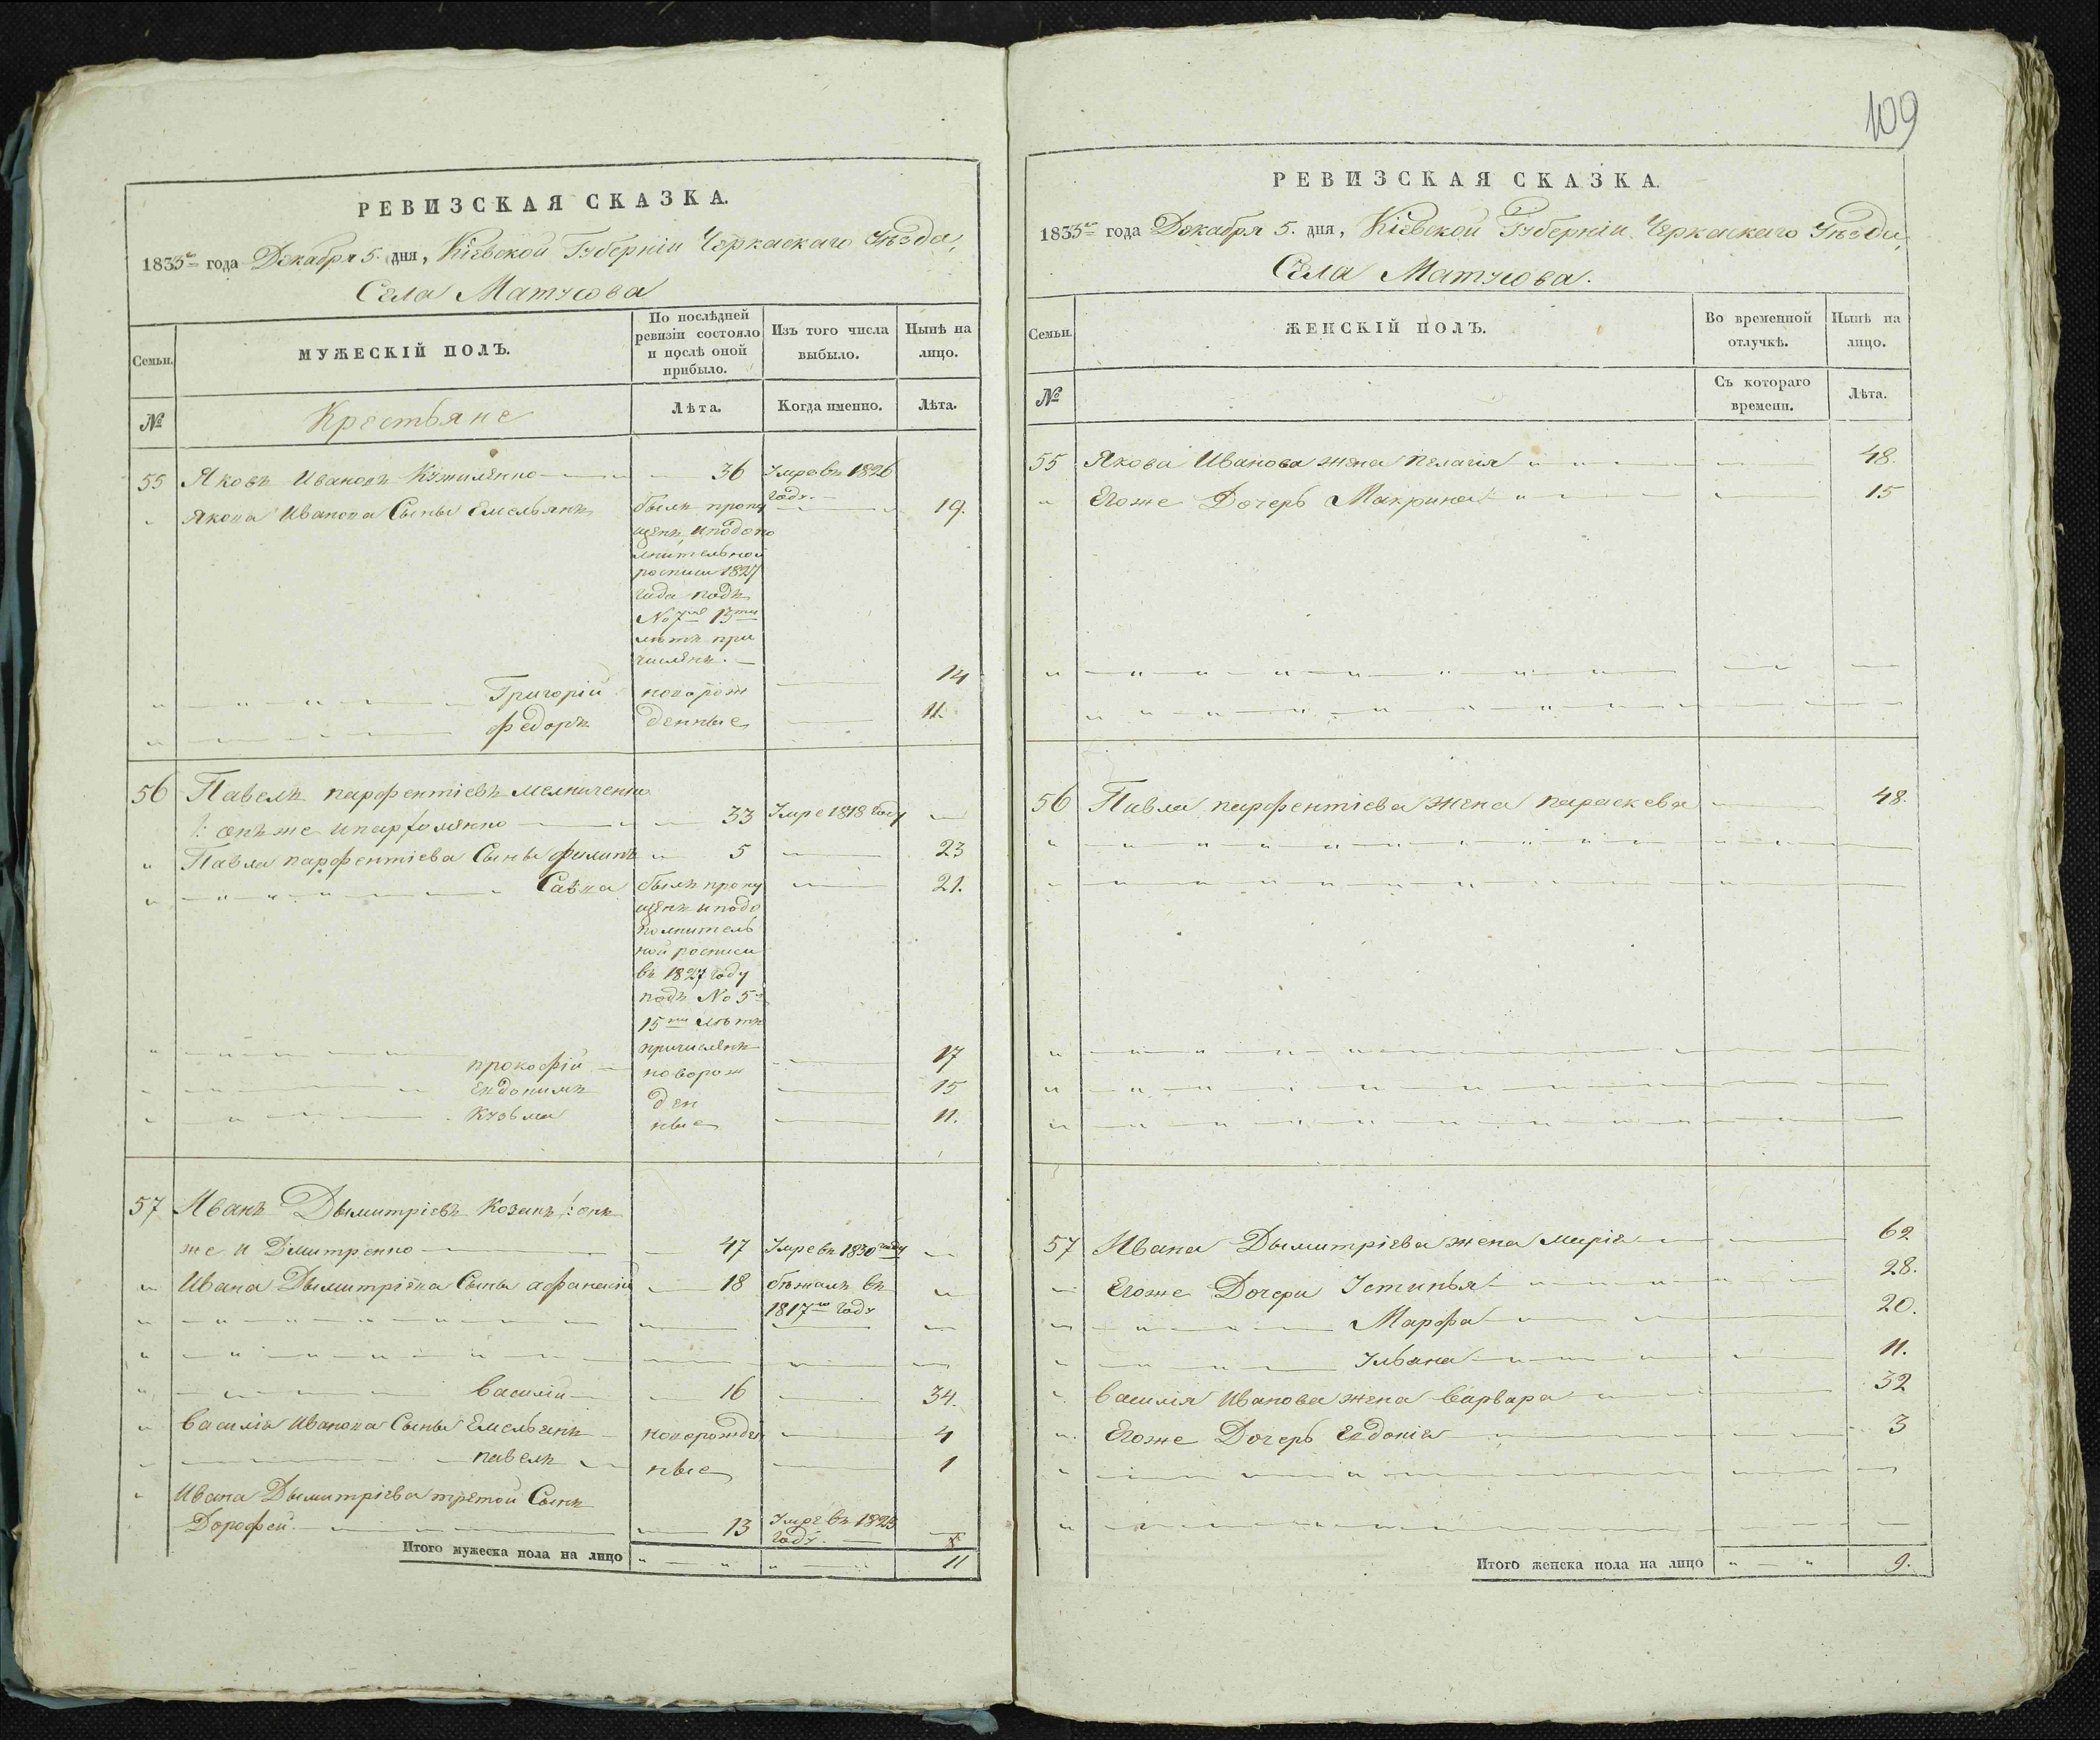 РЕВИЗСКАЯ СКАЗКА.
1833го года Декабря 5. дня, Кіевской Губерніи Черкаскаго Уезда,
Села Матусова
Семьи.
МУЖЕСКІЙ ПОЛЪ.
По послѣдней
ревизіи состояло
и послѣ оной
прибыло.
Изъ того числа
выбыло.
Нынѣ на
лицо.
№
Крестьяне
Лѣта.
Когда именно.
Лѣта.
55 Яковъ Ивановъ 36 Умре въ 1826
году.
" Якова Иванова Сыны Емельянъ былъ пропу 19.
щенъ и подопо
лнительной
росписи 1827
года подъ
№ 7мъ 13ти
летъ при
численъ.
" Григорій новорож 14
" Федоръ денные 11.
56 Павелъ Парфентіевъ Мелниченко
/: онъ же и Парфоменко 33 Умре 1818 году
" Павла Парфентіева Сыны Филипъ 5 23
" Савва былъ пропу 21.
щенъ и подо
полнитель
ной росписи
въ 1827 году
подъ № 5
15ти летъ
причисленъ
" Прокофій новорож 17
" Евдокимъ ден 15
" Кузьма ные 11.
57 Иванъ Дымитріевъ Козакъ /: онъ
же и Димитренко 47 Умре въ 1830 году
" Ивана Дымитріева Сыны Афанасій 18 бежалъ въ
1817го году
" Василій 16 34.
" Василія Иванова Сыны Емельянъ новорожден 4
" Павелъ ные 1
" Ивана Дымитріева третой Сынъ
Дорофей. 13 Умре въ 1825
году.
Итого мужеска пола на лицо " — " " — " 11
109
РЕВИЗСКАЯ СКАЗКА.
1833го года Декабря 5. дня, Кіевской Губерніи Черкаскаго Уезда,
Села Матусова.
Семьи.
ЖЕНСКІЙ ПОЛЪ.
Во временной
отлучкѣ.
Нынѣ на
лицо.
№
Съ котораго
времени.
Лѣта.
55 Якова Иванова жена Пелагия 48.
" Егоже Дочерь Макрина 15
56 Павла Парфентіева жена Параскева 48.
57 Ивана Дымитріева жена Марія 62
" Егоже Дочери Устинья 28.
" Марфа 20.
" Ульяна 11.
" Василія Иванова жена Варвара 32
" Егоже Дочерь Евдокія 3
Итого женска пола на лицо " — " 9.